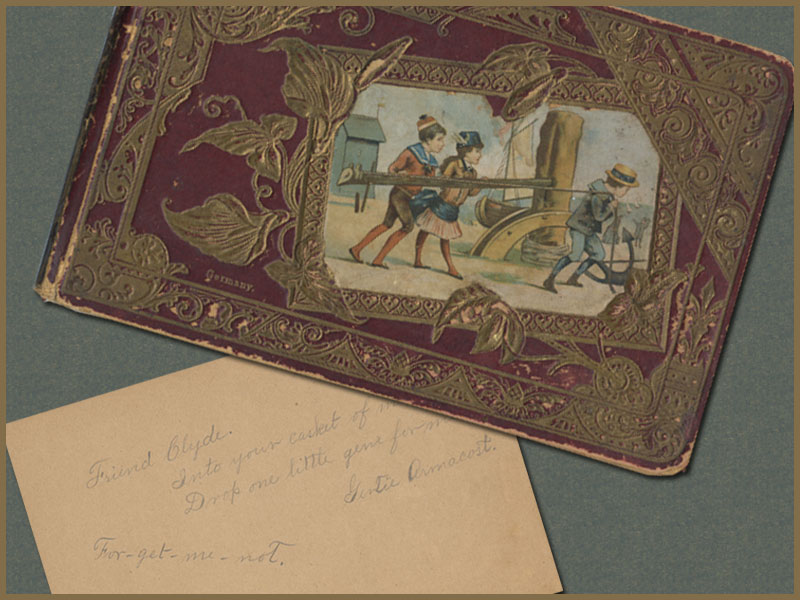 Germany.
Friend Clyde.
Into your casket of
Drop one little gem for
Gertie Armacost.
For-get-me-not.